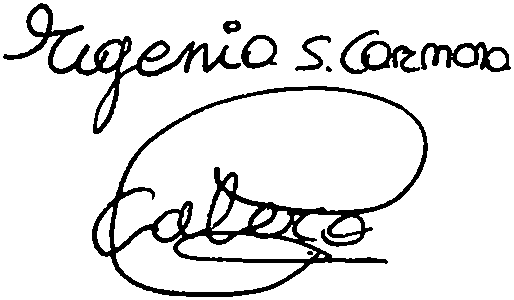 Eugenio S. Carmona
Calero